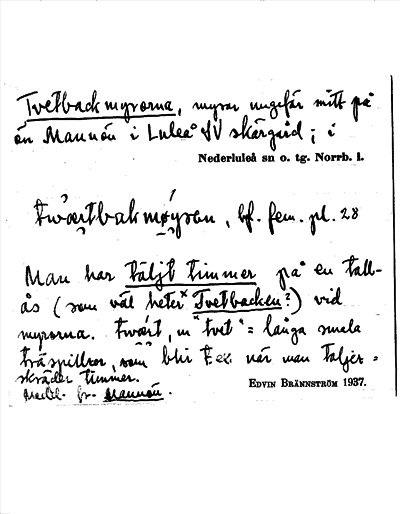 Tvetbackmyrorna, myrar ungefär mitt på
ön Mannön i Luleå SV skärgård; i
Nederluleå sn o. tg. Norrb. l.
bf. fem. pl. 28
Man har täljt timmer på en tall-
ås (som väl heter *Tvetbacken?) vid
myrorna. "tvet" = långa smala
träspillror, som blir t.ex. när man täljer =
skräder timmer.
Meddel. fr. Mannön.
EDVIN BRÄNNSTRÖM 1937.